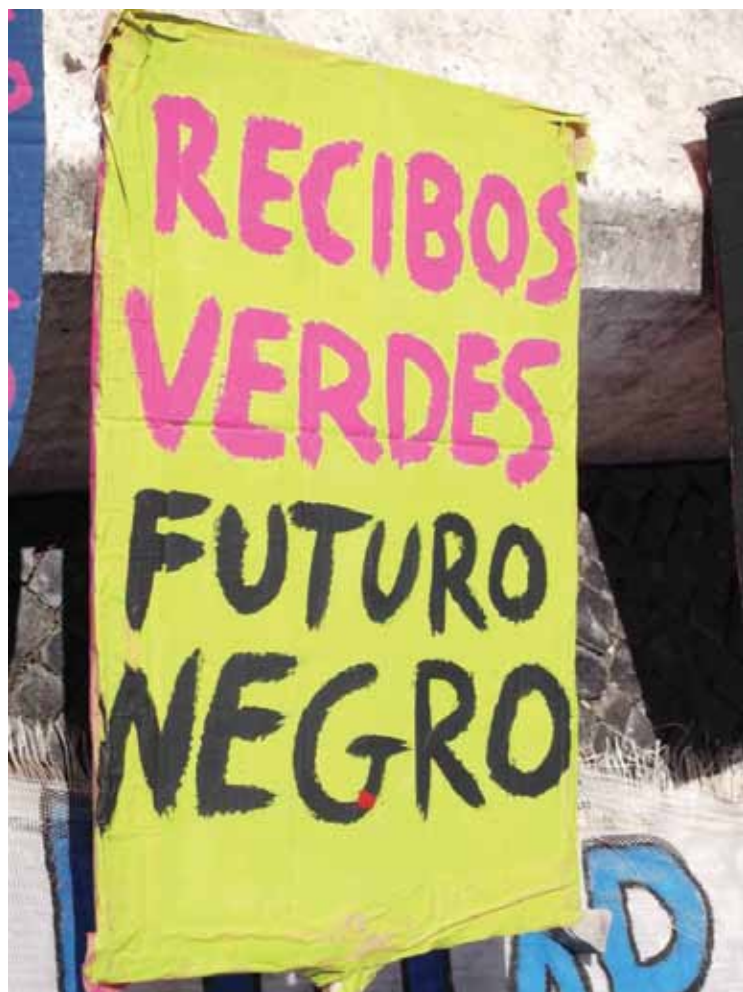 RECIBOS
VERDES
FUTURO
NEGRO